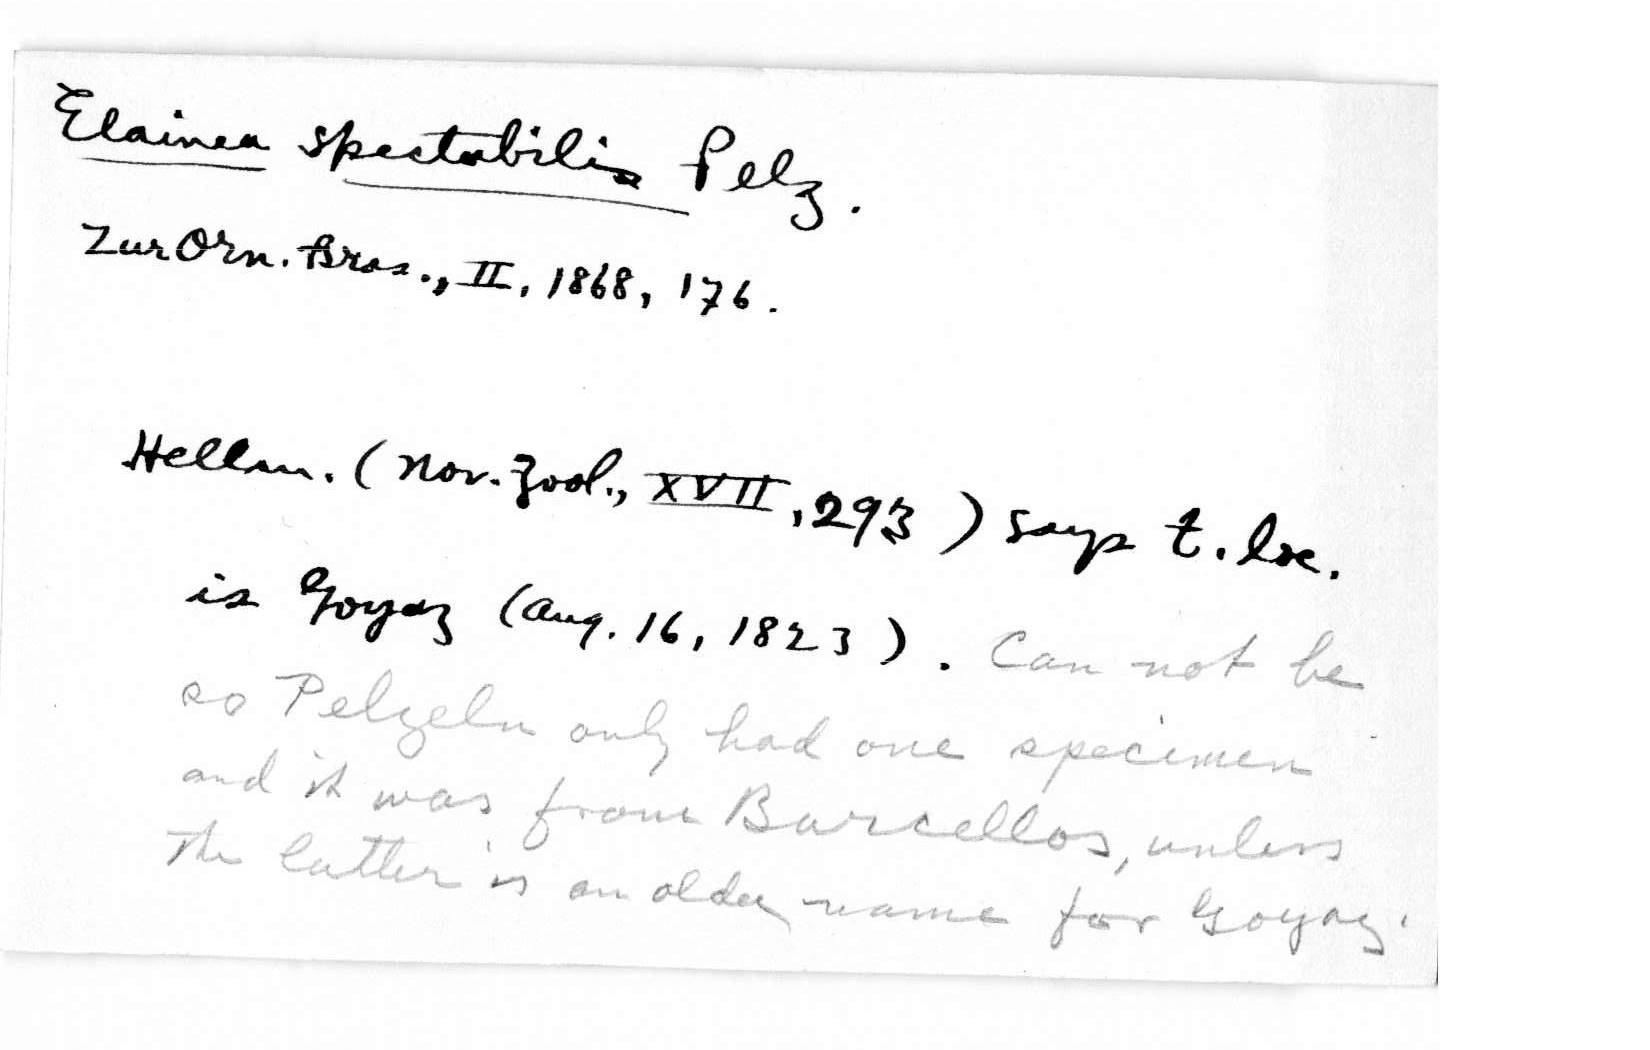 Elainea spectabilis Pelz.
Zur Orn. Bras., II, 1868, 176.
Hellm. (Nov. Zool., XVII, 293) says t. loc.
is Goyaz (Aug. 16, 1823). Can not be
so Pelzeln only had one specimen
and it was from Barcellos, unless
the latter is an older name for Goyaz.